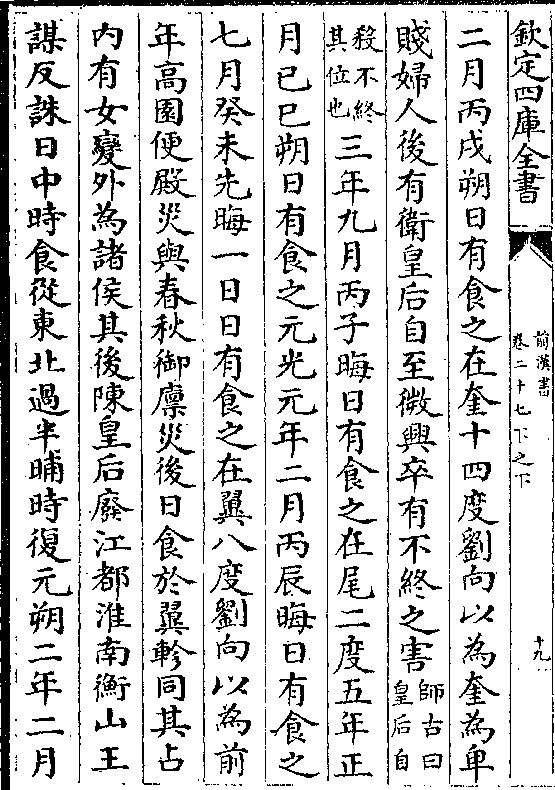 欽定四庫全書
前漢書
卷二十七下之下
十九
二月丙戌朔日有食之在奎十四度劉向以為奎為卑
賤婦人後有衛皇后自至微興卒有不終之害
師古曰
皇后自
殺不終
其位也
三年九月丙子晦日有食之在尾二度五年正
月己巳朔日有食之元光元年二月丙辰晦日有食之
七月癸未先晦一日日有食之在翼八度劉向以為前
年高園便殿災與春秋御廩災後日食於翼軫同其占
内有女變外為諸侯其後陳皇后廢江都淮南衡山王
謀反誅日中時食從東北過半晡時復元朔二年二月